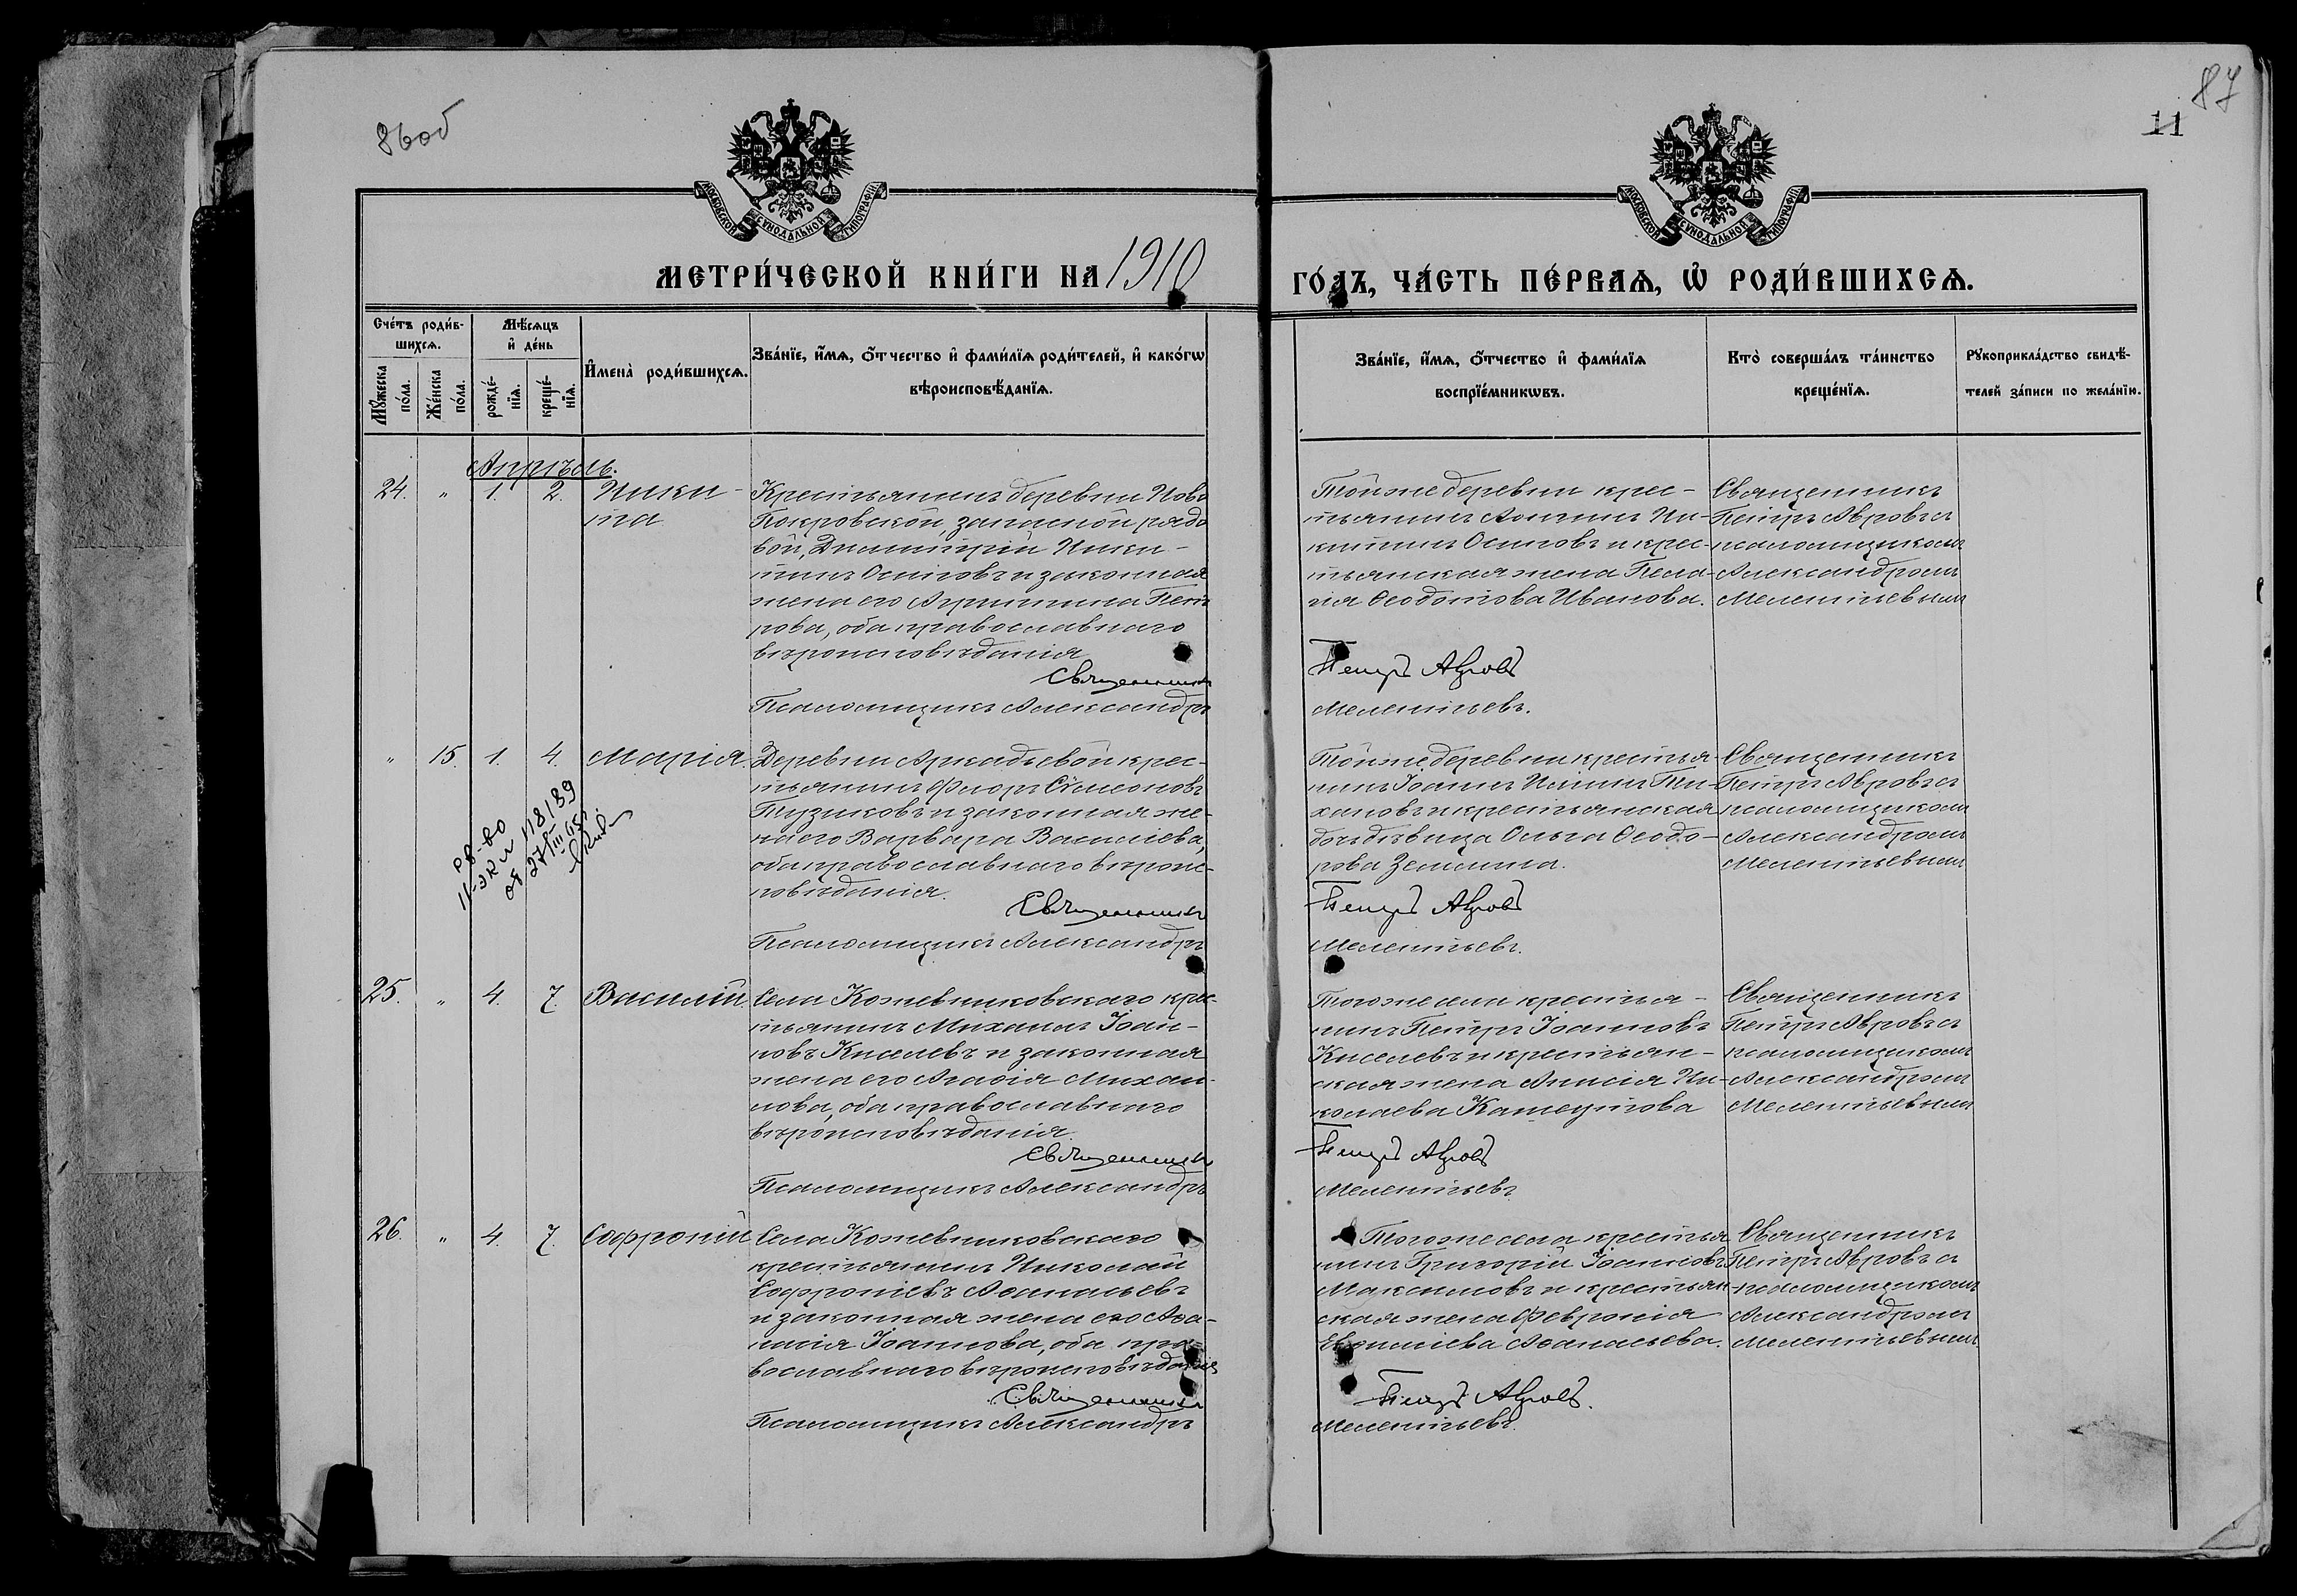 86об
87
11
МОСКОВСКОЙ СѴНОДАЛЬНОЙ ТИПОГРАФІИ
МОСКОВСКОЙ СѴНОДАЛЬНОЙ ТИПОГРАФІИ
МЕТРИ́ЧЕСКОЙ КНИ́ГИ НА 1910
ГО́ДЪ, ЧА́СТЬ ПЕ́РВАѦ, Ѡ҆ РОДИ́ВШИХСѦ.
Сче́тъ роди́в-
шихсѧ.
Мꙋ́жеска
по́ла.
Же́нска
по́ла.
Мѣ́сѧцъ
и҆ де́нь
рожде́-
нїѧ.
креще́-
нїѧ.
И҆мена̀ роди́вшихсѧ.
Зва́нїе, и҆́мѧ, ѻ҆́тчество и҆ фами́лїѧ роди́телей, и҆ како́гѡ
вѣроисповѣ́данїѧ.
Зва́нїе, и҆́мѧ, ѻ҆́тчество и҆ фами́лїѧ
воспрїе́мникѡвъ.
Кто̀ соверша́лъ та́инство
креще́нїѧ.
Рꙋкоприкла́дство свидѣ́-
телей за́писи по жела́нїю.
Апрѣль.
24. " 1. 2. Ники-
та
Крестьянинъ деревни Ново
Покровской, запасной рядо
вой, Димитрій Ники-
тинъ Осиповъ и законная
жена его Агриппина Пет
рова, оба православнаго
вѣроисповѣданія
Священникъ
Псаломщикъ Александръ
Той же деревни крес-
тьянинъ Логгинъ Ни-
китинъ Осиповъ и крес-
тьянская жена Пела-
гія Ѳеодотова Иванова.
Петръ Авровъ
Мелентьевъ.
Священникъ
Петръ Авровъ съ
псаломщикомъ
Александромъ
Мелентьевымъ
" 15. 1. 4. Марія.
Деревни Аркадьевой крес-
тьянинъ Флоръ Сѵмеоновъ
Тузиковъ и законная же-
на его Варвара Василіева,
оба православнаго вѣроис-
повѣданія.
Священникъ
Псаломщикъ Александръ
Той же деревни крестья-
нинъ Іоаннъ Ти-
хановъ и крестьянская
дочь дѣвица Ольга Ѳеодо-
рова Зенина.
Петръ Авровъ
Мелентьевъ.
Священникъ
Петръ Авровъ съ
псаломщикомъ
Александромъ
Мелентьевымъ
св-во
II-ЭК № 118189
от 27/III 65г.
25. " 4. 7. Василій.
Села Кожевниковскаго крес-
тьянинъ Михаилъ Іоан-
новъ Киселевъ и законная
жена его Агаѳія Михаи-
лова, оба православнаго
вѣроисповѣданія.
Священникъ
Псаломщикъ Александръ
Того же села крестья-
нинъ Петръ Іоанновъ
Киселевъ и крестьян-
ская жена Анисія Ни-
колаева
Петръ Авровъ
Мелентьевъ
Священникъ
Петръ Авровъ съ
псаломщикомъ
Александромъ
Мелентьевымъ
26. " 4. 7. Софроній
Села Кожевниковскаго
крестьянинъ Николай
Софроніевъ Аѳанасьевъ
и законная жена его Аѳа-
насія Іоаннова, оба пра-
вославнаго вѣроисповѣданія
Священникъ
Псаломщикъ Александръ
Того же села крестья
нинъ Григорій Іоанновъ
Максимовъ и крестьян-
ская жена Февронія
Евѳиміева Аѳанасьева.
Петръ Авровъ.
Мелентьевъ.
Священникъ
Петръ Авровъ съ
псаломщикомъ
Александромъ
Мелентьевымъ